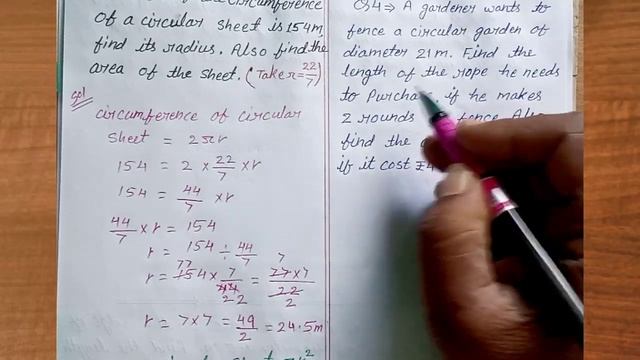 of a circular sheet is 154m,
find its radius. Also find the
area of the sheet. (Take π = 22/7)
Sol
circumference of circular
sheet = 2πr
154 = 2 × 22/7 × r
154 = 44/7 × r
44/7 × r = 154
r = 154 ÷ 44/7
r = 154 × 7/44 = 77×7/22
77 22 7 2
r = 7×7 = 49/2 = 24.5m
Q4 ⇒ A gardener wants to
fence a circular garden of
diameter 21m. Find the
length of the rope he needs
to Purchase if he makes
2 rounds fence. Also
find the
if it cost ₹4